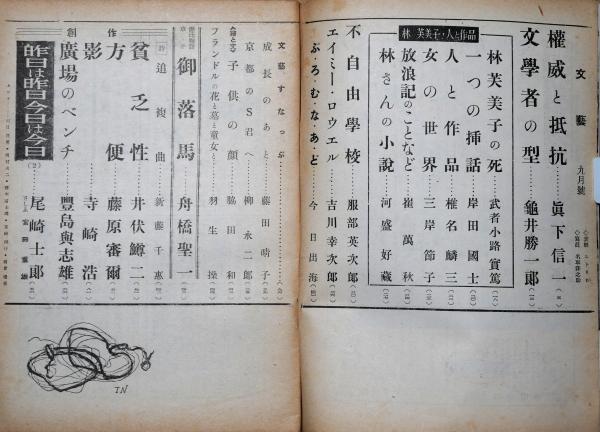 文藝 九月號
權威と抵抗 眞下信一
文學者の型 龜井勝一郎
林芙美子・人と作品
林芙美子の死 武者小路實篤
一つの挿話 岸田國士
人と作品 椎名麟三
女の世界 三岸節子
放浪記のことなど 崔萬秋
林さんの小說 河盛好藏
不自由學校 服部英次郎
エイミー・ロウエル 吉川幸次郎
ぷ・ろ・む・な・あ・ど 今日出海
文藝すなっぷ
成長のあと 藤田晴子
京都のS君へ 柳永二郎
子供の顔 脇田和
フランドルの花と墓と童女と 羽生操
御落馬 舟橋聖一
詩 追複曲 新藤千惠
創作
貧乏性 井伏鱒二
方便 藤原審爾
影 寺崎浩
廣場のベンチ 豐島與志雄
昨日は昨日今日は今日 (2) 尾崎士郎
T.N